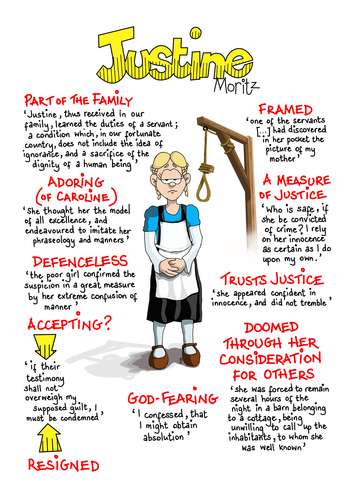 Justine
Moritz
PART OF THE FAMILY
'Justine, thus received in our
family, learned the duties of a servant;
a condition which, in our fortunate
country, does not include the idea of
ignorance, and a sacrifice of the
dignity of a human being.'
ADORING
(OF CAROLINE)
'She thought her the model
of all excellence, and
endeavoured to imitate her
phraseology and manners'
DEFENCELESS
'the poor girl confirmed the
suspicion in a great measure
by her extreme confusion of
manner'
ACCEPTING?
'if their
testimony
shall not
overweigh my
supposed guilt, I
must be condemned'
RESIGNED
GOD-FEARING
'I confessed, that
I might obtain
absolution'
FRAMED
'one of the servants
[...] had discovered
in her pocket the
picture of my
mother'
A MEASURE
OF JUSTICE
'Who is safe, if
she be convicted
of crime? I rely
on her innocence
as certain as I do
upon my own.'
TRUSTS JUSTICE
'she appeared confident in
innocence, and did not tremble'
DOOMED
THROUGH HER
CONSIDERATION
FOR OTHERS
'she was forced to remain
several hours of the
night in a barn belonging
to a cottage, being
unwilling to call up the
inhabitants, to whom she
was well known'